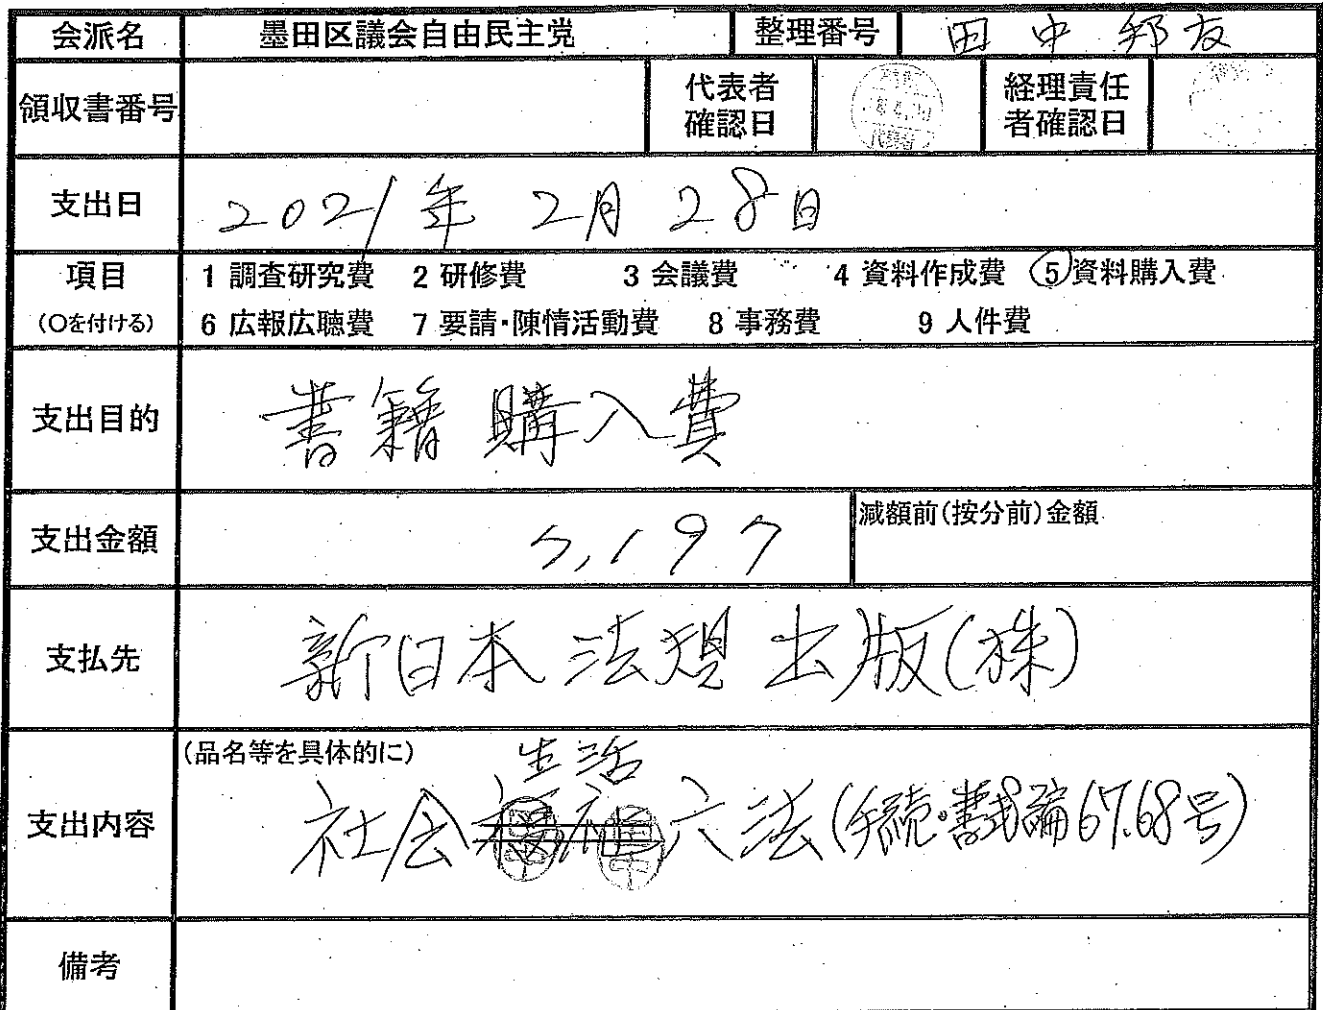 会派名 墨田区議会自由民主党 整理番号 田中邦友
領収書番号 代表者確認日 代表者 経理責任者確認日
支出日 2021年 2月 28日
項目 1 調査研究費 2 研修費 3 会議費 4 資料作成費 5 資料購入費
(〇を付ける) 6 広報広聴費 7 要請・陳情活動費 8 事務費 9 人件費
支出目的 書籍購入費
支出金額 7,197 減額前(按分前)金額
支払先 新日本法規出版(株)
(品名等を具体的に)
生活
支出内容 社会福祉六法(手続・書式編67.68号)
備考